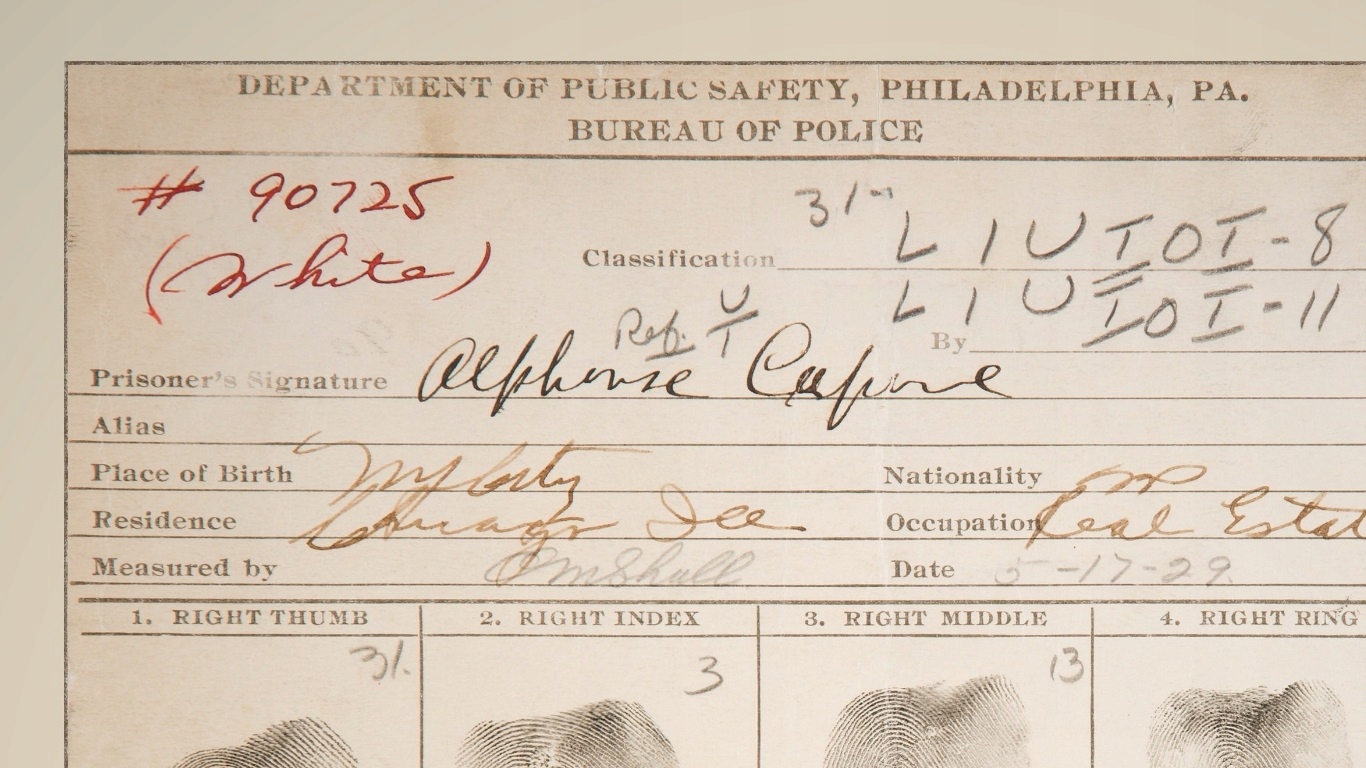 DEPARTMENT OF PUBLIC SAFETY, PHILADELPHIA, PA.
BUREAU OF POLICE
# 90725
(White)
Classification 31 L 1 U I O I - 8
L 1 U I O I - 11
Ref. U/T
By
Prisoner's Signature Alphonse Capone
Alias
Place of Birth N Y City Nationality
Residence Chicago Ill Occupation Real Estat
Measured by Date 5-17-29
1. RIGHT THUMB 2. RIGHT INDEX 3. RIGHT MIDDLE 4. RIGHT RING
31. 3 13